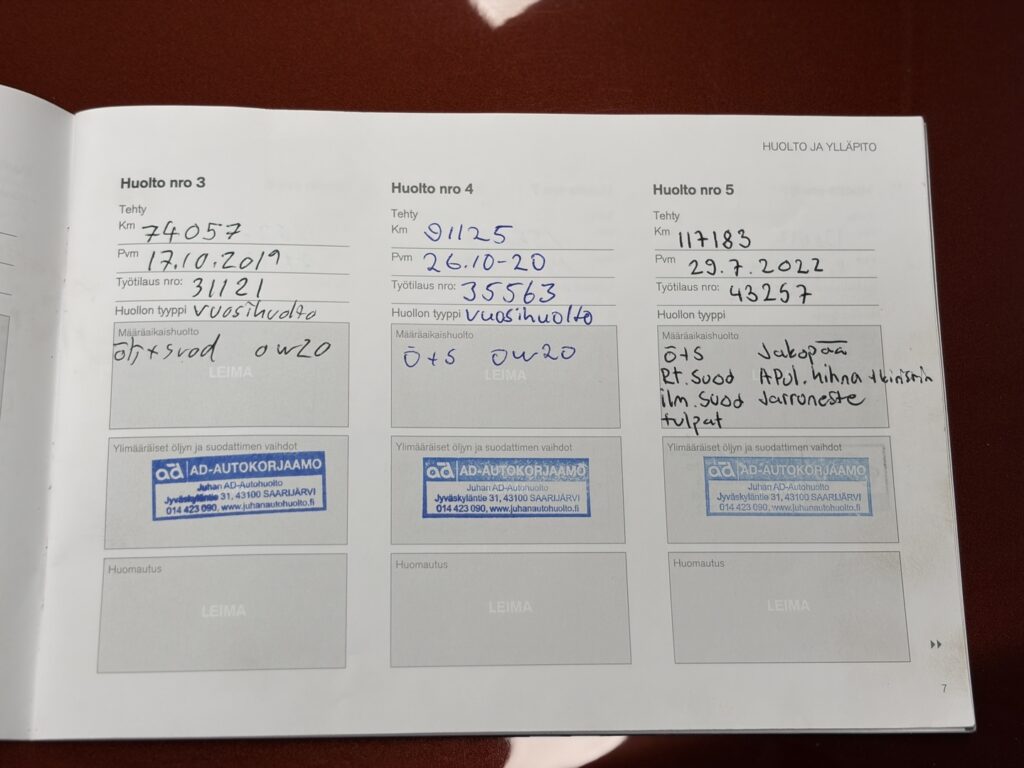 HUOLTO JA YLLÄPITO
Huolto nro 3
Tehty
Km 74057
Pvm 17.10.2019
Työtilaus nro: 31121
Huollon tyyppi vuosihuolto
Määräaikaishuolto
ölj+suod 0w20
LEIMA
Ylimääräiset öljyn ja suodattimen vaihdot
ad AD-AUTOKORJAAMO
Juhan AD-Autohuolto
Jyväskyläntie 31, 43100 SAARIJÄRVI
014 423 090, www.juhanautohuolto.fi
Huomautus
LEIMA
Huolto nro 4
Tehty
Km 91125
Pvm 26.10-20
Työtilaus nro: 35563
Huollon tyyppi vuosihuolto
Määräaikaishuolto
ö+s 0w20
LEIMA
Ylimääräiset öljyn ja suodattimen vaihdot
ad AD-AUTOKORJAAMO
Juhan AD-Autohuolto
Jyväskyläntie 31, 43100 SAARIJÄRVI
014 423 090, www.juhanautohuolto.fi
Huomautus
LEIMA
Huolto nro 5
Tehty
Km 117183
Pvm 29.7.2022
Työtilaus nro: 43257
Huollon tyyppi
Määräaikaishuolto
ö+s Jakopää
Rt.suod Apul.hihna +kiristin
ilm.suod Jarruneste
tulpat
Ylimääräiset öljyn ja suodattimen vaihdot
ad AD-AUTOKORJAAMO
Juhan AD-Autohuolto
Jyväskyläntie 31, 43100 SAARIJÄRVI
014 423 090, www.juhanautohuolto.fi
Huomautus
LEIMA
7